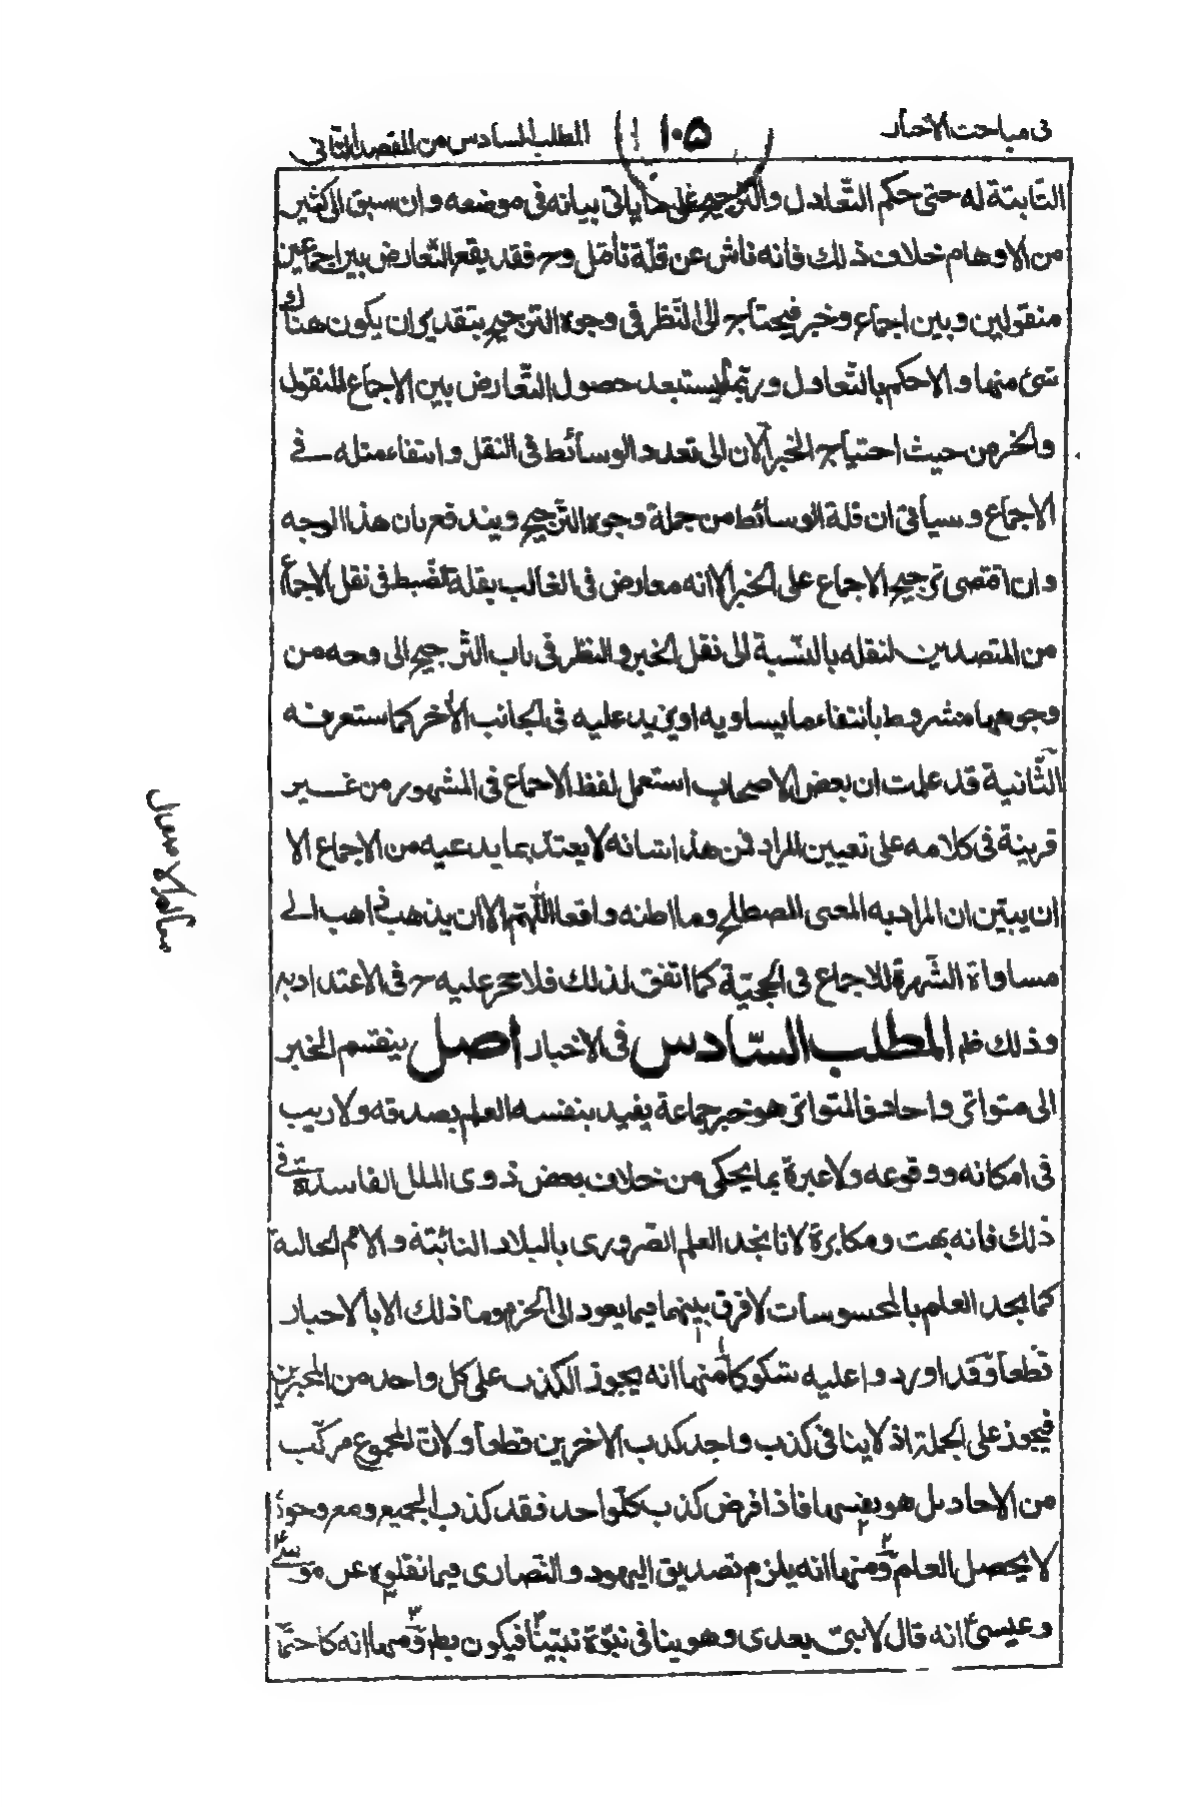 فى مباحث الأخبار
١٠۵
المطلب السادس من المقصد الثانى
الثابتة له حتى حكم التّعادل والترجيح على ما ياتى بيانه فى موضعه وان سبق الى كثير
من الاوهام خلاف ذلك فانه ناش عن قلّة تأمّل وح فقد يقع التّعارض بين اجماعين
منقولين وبين اجماع وخبر فيحتاج الى النّظر فى وجوه الترجيح بتقدير ان يكون هناك
شئ منها والا حكم بالتّعادل وربّما يستبعد حصول التّعارض بين الاجماع المنقول
والخبر من حيث احتياج الخبر الآن الى تعدد الوسائط فى النقل وانتفاء مثله فى
الاجماع وسياتى ان قلة الوسائط من جملة وجوه الترجيح ويندفع بان هذا الوجه
وان اقتضى ترجيح الاجماع على الخبر الا انه معارض فى الغالب بقلة الضّبط فى نقل الاجماع
من المتصدين لنقله بالنّسبة الى نقل الخبر والنظر فى باب التّرجيح الى وجه من
وجوهها مشروط بانتفاء ما يساويه او يزيد عليه فى الجانب الآخر كما ستعرفه
الثّانية قد علمت ان بعض الاصحاب استعمل لفظ الاجماع فى المشهور من غير
قرينة فى كلامه على تعيين المراد فمن هذا شانه لا يعتدّ بما يدعيه من الاجماع الا
ان يبيّن ان المراد به المعنى المصطلح وما اظنه واقعا اللّهمّ الا ان يذهب ذاهب الى
مساواة الشّهرة للاجماع فى الحجّيّة كما اتفق لذلك فلا حجر عليه ح فى الاعتداد به
وذلك ظم المطلب السّادس فى الاخبار اصل ينقسم الخبر
الى متواتر واحاد فالمتواتر هو خبر جماعة يفيد بنفسه العلم بصدقه ولا ريب
فى امكانه ووقوعه ولا عبرة بما يحكى من خلاف بعض ذوى الملل الفاسدة فى
ذلك فانه بهت ومكابرة لانا نجد العلم الضّرورى بالبلاد النائبة والامم الخالية
كما نجد العلم بالمحسوسات لا فرق بينهما فيما يعود الى الجزم وما ذلك الا بالاخبار
قطعا وقد اوردوا عليه شكوكا منها انه يجوز الكذب على كل واحد من المخبرين
فيجوز على الجملة اذ لا ينافى كذب واحد كذب الاخرين قطعا ولانّ المجموع مركّب
من الاحاد بل هو بعضها فاذا فرض كذب كلّ واحد فقد كذب الجميع ومع وجوده
لا يحصل العلم ومنها انه يلزم تصديق اليهود والنّصارى فيما نقلوه عن موسى
وعيسى انه قال لا نبى بعدى وهو ينافى نبوّة نبيّنا فيكون بطم ومنها انه كاحتما